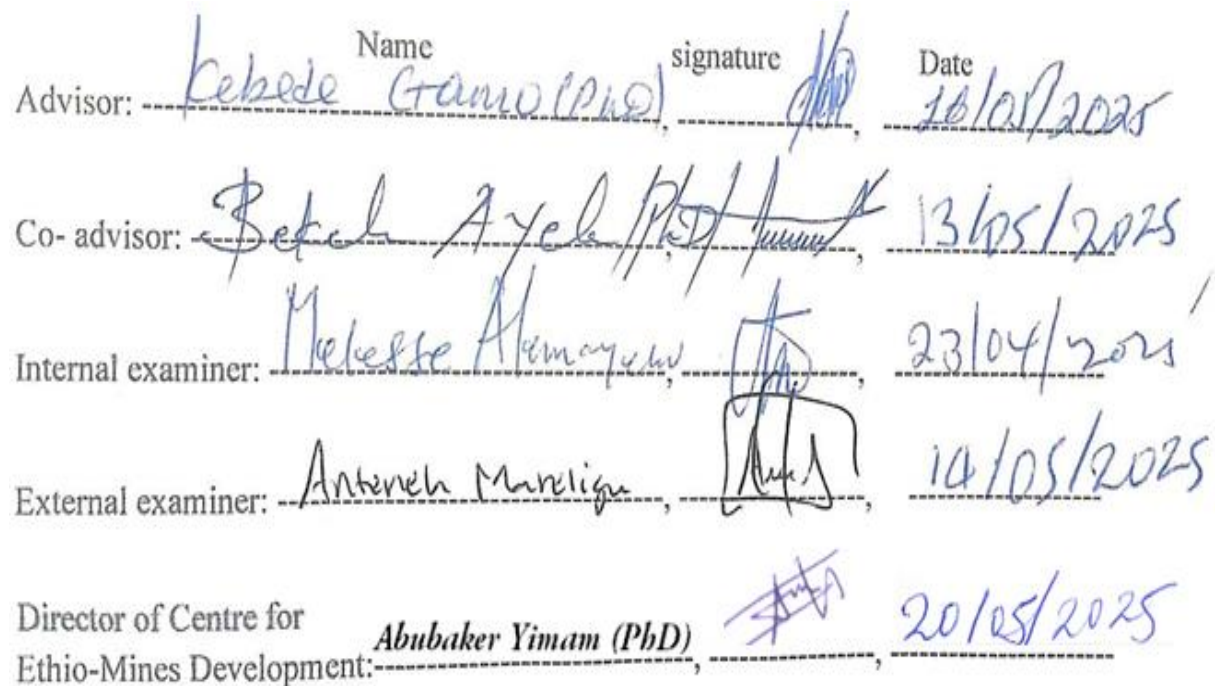 Name signature Date
Advisor: Kebede Gamo (PhD), 16/05/2025
Co- advisor: Bekele Ayele (PhD), 13/05/2025
Internal examiner: Melesse Alemayehu, 23/04/2025
External examiner: Anteneh, 14/05/2025
Director of Centre for
Ethio-Mines Development: Abubaker Yimam (PhD), 20/05/2025